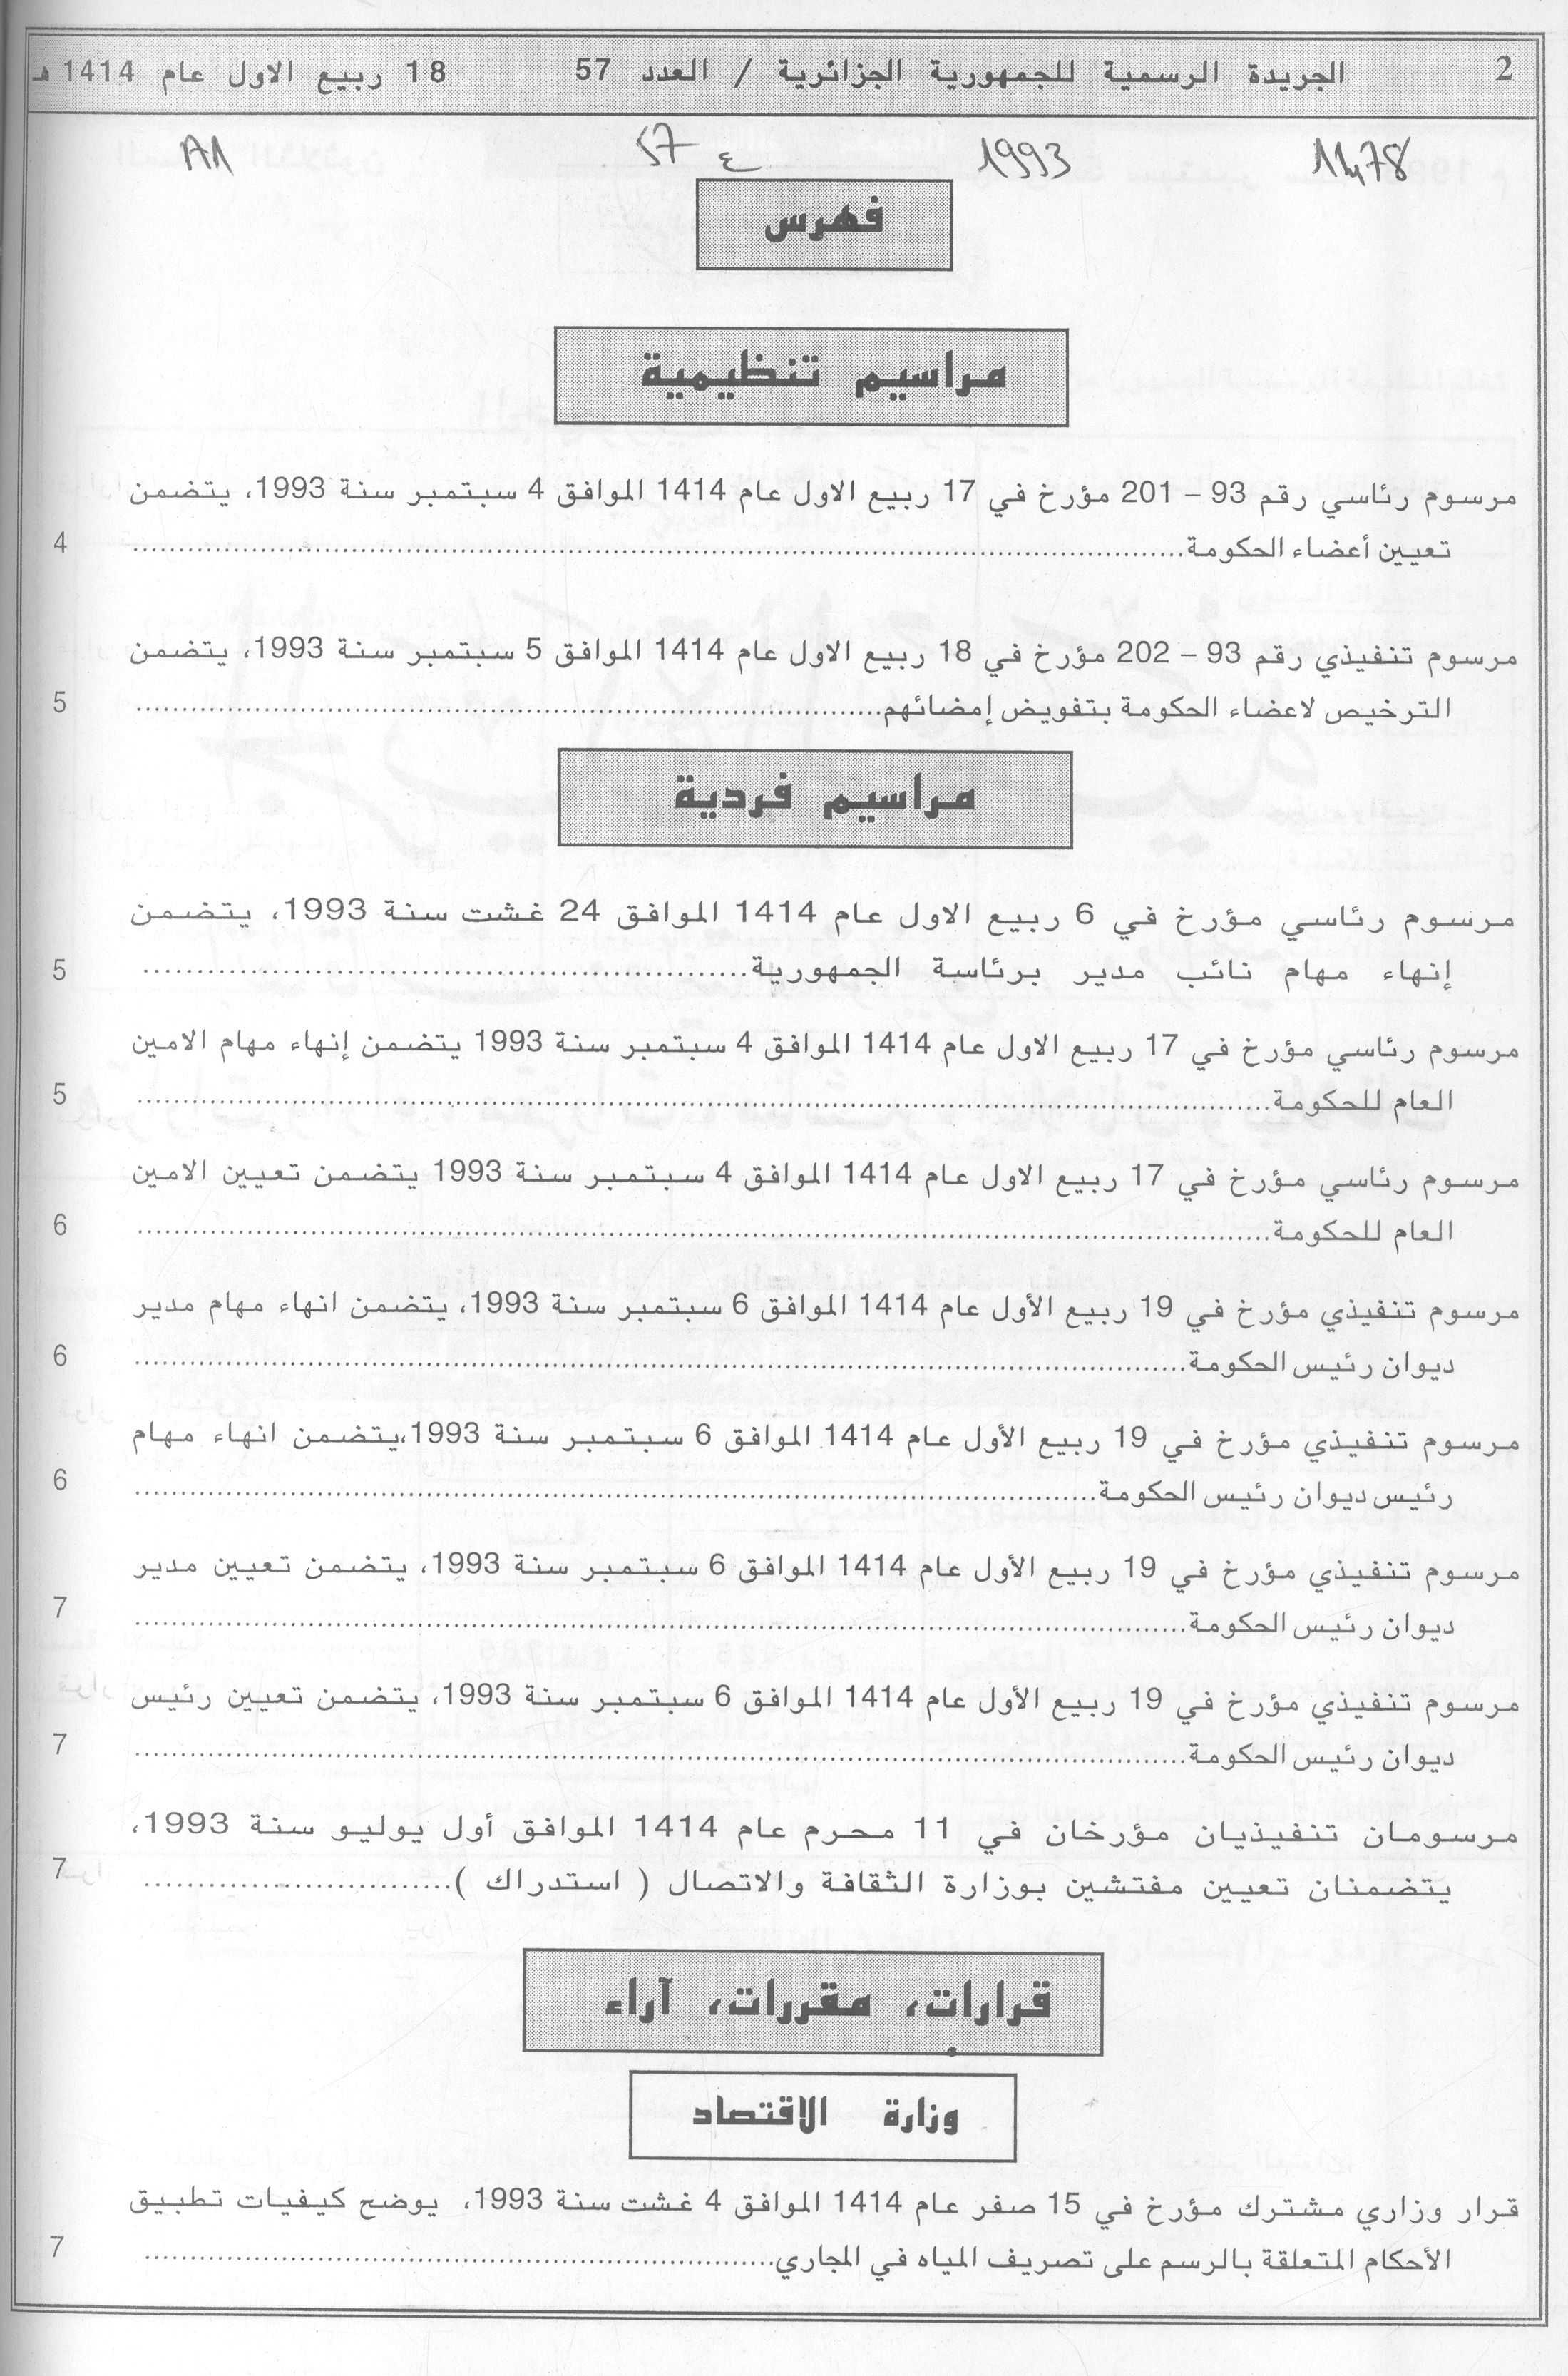 2 الجريدة الرسمية للجمهورية الجزائرية / العدد 57 18 ربيع الاول عام 1414 هـ
1993 ع 57 A1
فهرس
مراسيم تنظيمية
مرسوم رئاسي رقم 93 – 201 مؤرخ في 17 ربيع الاول عام 1414 الموافق 4 سبتمبر سنة 1993، يتضمن
تعيين أعضاء الحكومة........................ 4
مرسوم تنفيذي رقم 93 – 202 مؤرخ في 18 ربيع الاول عام 1414 الموافق 5 سبتمبر سنة 1993، يتضمن
الترخيص لاعضاء الحكومة بتفويض إمضائهم........................ 5
مراسيم فردية
مرسوم رئاسي مؤرخ في 6 ربيع الاول عام 1414 الموافق 24 غشت سنة 1993، يتضمن
إنهاء مهام نائب مدير برئاسة الجمهورية........................ 5
مرسوم رئاسي مؤرخ في 17 ربيع الاول عام 1414 الموافق 4 سبتمبر سنة 1993 يتضمن إنهاء مهام الامين
العام للحكومة........................ 5
مرسوم رئاسي مؤرخ في 17 ربيع الاول عام 1414 الموافق 4 سبتمبر سنة 1993 يتضمن تعيين الامين
العام للحكومة........................ 6
مرسوم تنفيذي مؤرخ في 19 ربيع الأول عام 1414 الموافق 6 سبتمبر سنة 1993، يتضمن انهاء مهام مدير
ديوان رئيس الحكومة........................ 6
مرسوم تنفيذي مؤرخ في 19 ربيع الأول عام 1414 الموافق 6 سبتمبر سنة 1993،يتضمن انهاء مهام
رئيس ديوان رئيس الحكومة........................ 6
مرسوم تنفيذي مؤرخ في 19 ربيع الأول عام 1414 الموافق 6 سبتمبر سنة 1993، يتضمن تعيين مدير
ديوان رئيس الحكومة........................ 7
مرسوم تنفيذي مؤرخ في 19 ربيع الأول عام 1414 الموافق 6 سبتمبر سنة 1993، يتضمن تعيين رئيس
ديوان رئيس الحكومة........................ 7
مرسومان تنفيذيان مؤرخان في 11 محرم عام 1414 الموافق أول يوليو سنة 1993،
يتضمنان تعيين مفتشين بوزارة الثقافة والاتصال ( استدراك )........................ 7
قرارات، مقررات، آراء
وزارة الاقتصاد
قرار وزاري مشترك مؤرخ في 15 صفر عام 1414 الموافق 4 غشت سنة 1993، يوضح كيفيات تطبيق
الأحكام المتعلقة بالرسم على تصريف المياه في المجاري........................ 7